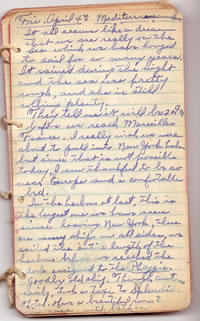 Fri. April 4th Mediterranean
It all seems like a dream
that we are really on the
sea which we have longed
to sail for so many years.
It rained during the night
and the sea was pretty
rough, and she is still
rolling plenty.
They tell us it will be
before we reach Marseilles
France. I really wish we were
about to pull into New York harbor
but since that is not possible
today, I am thankful to be so
near Europe and a comfortable
bed.
In the harbor at last, this is
the largest one we have seen
since leaving New York, there
are many ships on all sides, we
sailed the entire length of the
harbor before we reached the
dock assigned to the
Goodby old sky,
daily,
of a beautiful